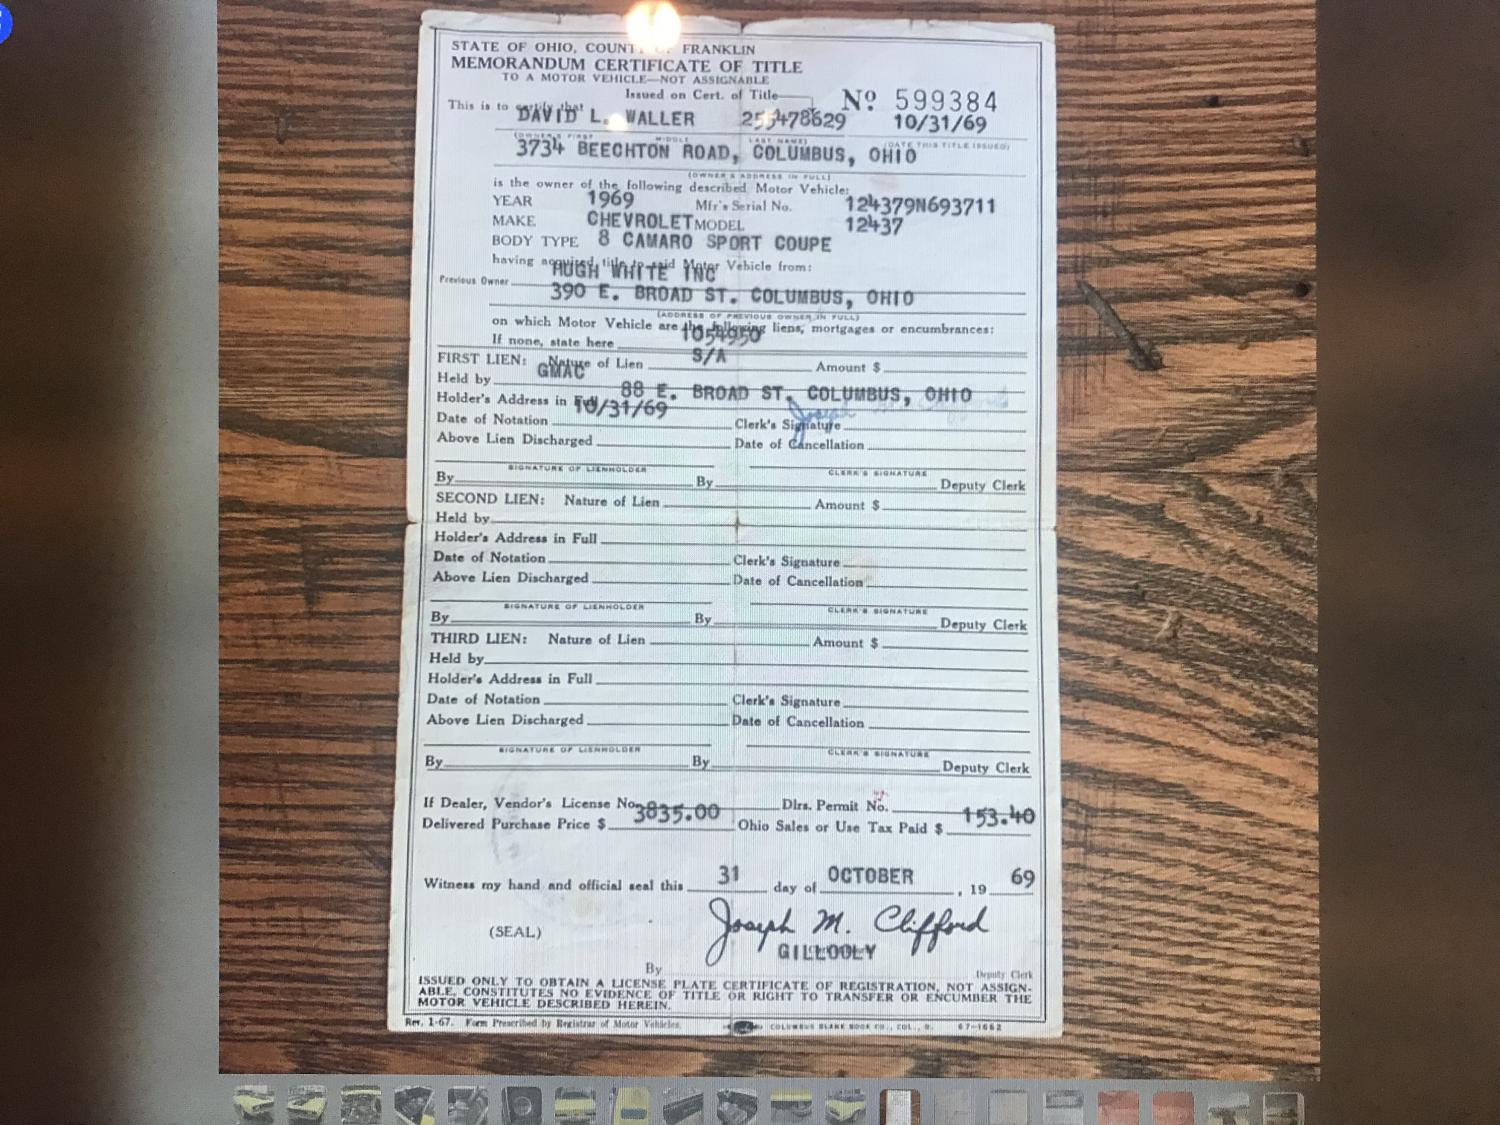 STATE OF OHIO, COUNTY OF FRANKLIN
MEMORANDUM CERTIFICATE OF TITLE
TO A MOTOR VEHICLE—NOT ASSIGNABLE
Issued on Cert. of Title
Nº 599384
This is to certify that
DAVID L. WALLER 255478629 10/31/69
(OWNER'S FIRST MIDDLE LAST NAME) (DATE THIS TITLE ISSUED)
3734 BEECHTON ROAD, COLUMBUS, OHIO
(OWNER'S ADDRESS IN FULL)
is the owner of the following described Motor Vehicle:
YEAR 1969 Mfr's Serial No. 124379N693711
MAKE CHEVROLET MODEL 12437
BODY TYPE 8 CAMARO SPORT COUPE
having acquired title to said Motor Vehicle from:
HUGH WHITE INC
Previous Owner
390 E. BROAD ST. COLUMBUS, OHIO
(ADDRESS OF PREVIOUS OWNER IN FULL)
on which Motor Vehicle are the following liens, mortgages or encumbrances:
If none, state here 1054950
FIRST LIEN: Nature of Lien S/A Amount $
Held by GMAC
Holder's Address in Full 88 E. BROAD ST. COLUMBUS, OHIO
Date of Notation 10/31/69 Clerk's Signature Joseph M. Clifford
Above Lien Discharged Date of Cancellation
SIGNATURE OF LIENHOLDER CLERK'S SIGNATURE
By By Deputy Clerk
SECOND LIEN: Nature of Lien Amount $
Held by
Holder's Address in Full
Date of Notation Clerk's Signature
Above Lien Discharged Date of Cancellation
SIGNATURE OF LIENHOLDER CLERK'S SIGNATURE
By By Deputy Clerk
THIRD LIEN: Nature of Lien Amount $
Held by
Holder's Address in Full
Date of Notation Clerk's Signature
Above Lien Discharged Date of Cancellation
SIGNATURE OF LIENHOLDER CLERK'S SIGNATURE
By By Deputy Clerk
If Dealer, Vendor's License No. Dlrs. Permit No.
Delivered Purchase Price $ 3835.00 Ohio Sales or Use Tax Paid $ 153.40
Witness my hand and official seal this 31 day of OCTOBER, 19 69
Joseph M. Clifford
(SEAL)
GILLOOLY
By Deputy Clerk
ISSUED ONLY TO OBTAIN A LICENSE PLATE CERTIFICATE OF REGISTRATION, NOT ASSIGN-
ABLE, CONSTITUTES NO EVIDENCE OF TITLE OR RIGHT TO TRANSFER OR ENCUMBER THE
MOTOR VEHICLE DESCRIBED HEREIN.
Rev. 1-67. Form Prescribed by Registrar of Motor Vehicles. COLUMBUS BLANK BOOK CO., COL., O. 67-1662